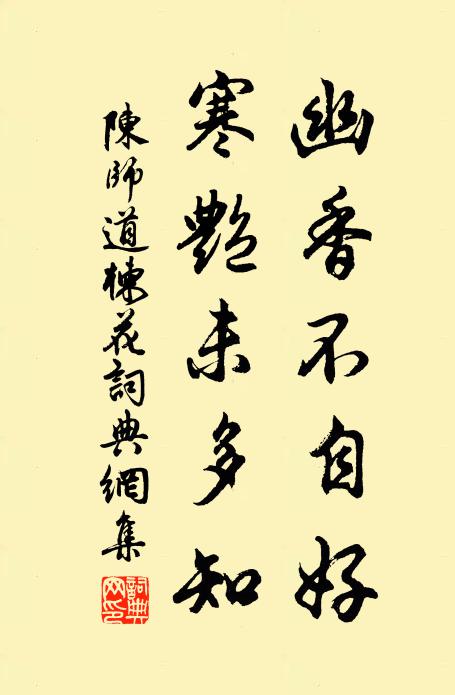 幽香不自好
寒艷未多知
陳師道楝花詞典網集
詞典網印